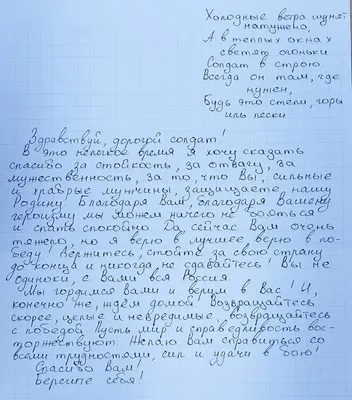 Холодные ветра шумят
натужено,
А в теплых окнах
светят огоньки.
Солдат в строю.
Всегда он там, где
нужен,
Будь это степи, горы
иль пески
Здравствуй, дорогой солдат!
В это нелегкое время я хочу сказать
спасибо за стойкость, за отвагу, за
мужественность, за то, что Вы, сильные
и храбрые мужчины, защищаете нашу
Родину. Благодаря Вам, благодаря Вашему
героизму мы можем ничего не бояться
и спать спокойно. Да, сейчас Вам очень
тяжело, но я верю в лучшее, верю в по-
беду! Держитесь, стойте за свою страну
до конца и никогда не сдавайтесь! Вы не
одиноки, с Вами вся Россия.
Мы гордимся Вами и верим в Вас! И,
конечно же, ждём домой. Возвращайтесь
скорее, целые и невредимые, возвращайтесь
с победой. Пусть мир и справедливость вос-
торжествуют. Желаю Вам справиться со
всеми трудностями, сил и удачи в бою!
Спасибо Вам!
Берегите себя!